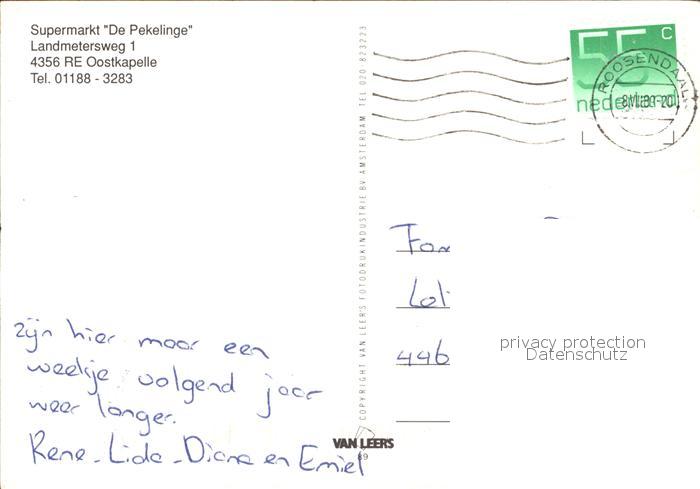 Supermarkt "De Pekelinge"
Landmetersweg 1
4356 RE Oostkapelle
Tel. 01188 - 3283
55 C
nederland
ROOSENDAAL
COPYRIGHT VAN LEERS FOTODRUKINDUSTRIE BV AMSTERDAM TEL 020-823223
446
privacy protection
Datenschutz
zijn hier maar een
weekje volgend jaar
weer langer.
Rene - Lida - Diana en Emiel
VAN LEERS
89